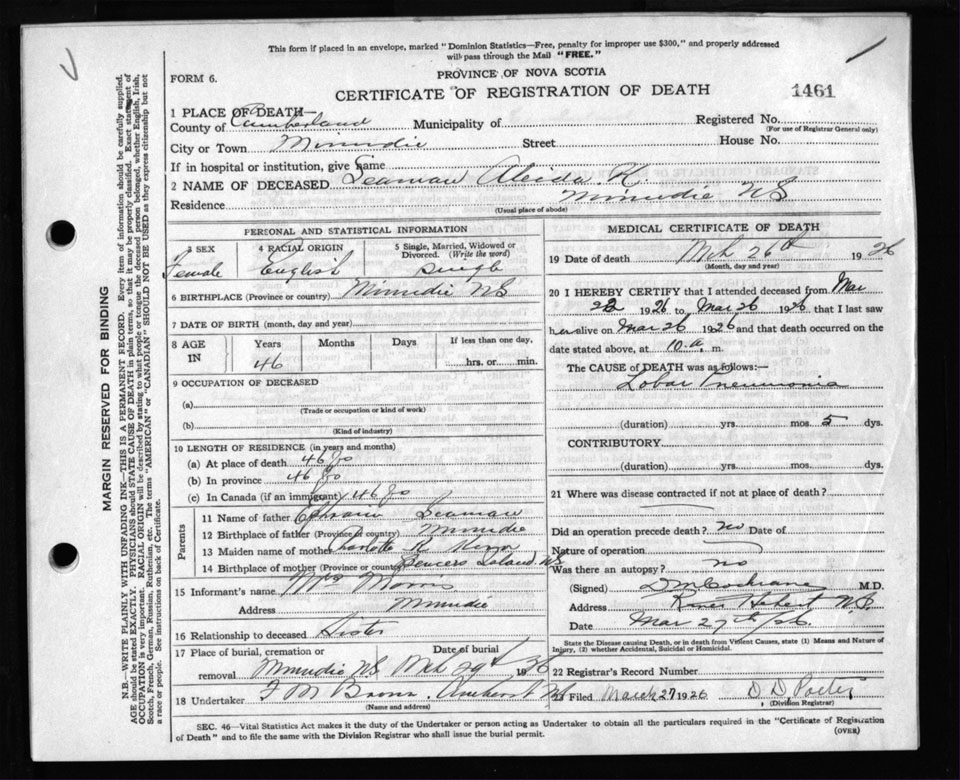 This form if placed in an envelope, marked "Dominion Statistics—Free, penalty for improper use $300," and properly addressed
will pass through the Mail "FREE."
FORM 6.
PROVINCE OF NOVA SCOTIA
CERTIFICATE OF REGISTRATION OF DEATH
1461
1 PLACE OF DEATH—
County of Cumberland Municipality of Registered No.
(For use of Registrar General only)
City or Town Minudie Street House No.
If in hospital or institution, give name
2 NAME OF DECEASED Seaman R.
Residence Minudie NS
(Usual place of abode)
PERSONAL AND STATISTICAL INFORMATION
3 SEX 4 RACIAL ORIGIN 5 Single, Married, Widowed or Divorced. (Write the word)
Female English Single
6 BIRTHPLACE (Province or country) Minudie NS
7 DATE OF BIRTH (month, day and year)
8 AGE IN Years Months Days If less than one day,
46 hrs. or min.
9 OCCUPATION OF DECEASED
(a)
(Trade or occupation or kind of work)
(b)
(Kind of industry)
10 LENGTH OF RESIDENCE (in years and months)
(a) At place of death 46 yrs
(b) In province 46 yrs
(c) In Canada (if an immigrant) 46 yrs
Parents
11 Name of father Ephraim Seaman
12 Birthplace of father (Province or country) Minudie
13 Maiden name of mother Charlotte R
14 Birthplace of mother (Province or country) Spencers Island NS
15 Informant's name Mrs Morris
Address Minudie
16 Relationship to deceased Sister
17 Place of burial, cremation or removal Date of burial
Minudie NS Mch 29th 1926
18 Undertaker Amherst NS
(Name and address)
MEDICAL CERTIFICATE OF DEATH
19 Date of death Mch 26th 1926
(Month, day and year)
20 I HEREBY CERTIFY that I attended deceased from Mar
1926 to Mar 26 1926 that I last saw
her alive on Mar 26 1926 and that death occurred on the
date stated above, at 10 a. m.
The CAUSE of DEATH was as follows:—
Lobar Pneumonia
(duration) yrs. mos. 5 dys.
CONTRIBUTORY
(duration) yrs. mos. dys.
21 Where was disease contracted if not at place of death?
Did an operation precede death? no Date of
Nature of operation
Was there an autopsy? no
(Signed) Cochrane M.D.
Address River Hebert N.S.
Date Mar 27th/26
State the Disease causing Death, or in death from Violent Causes, state (1) Means and Nature of
Injury, (2) whether Accidental, Suicidal or Homicidal.
22 Registrar's Record Number
23 Filed March 29 1926 D. D. Porter
(Division Registrar)
SEC. 46—Vital Statistics Act makes it the duty of the Undertaker or person acting as Undertaker to obtain all the particulars required in the "Certificate of Registration
of Death" and to file the same with the Division Registrar who shall issue the burial permit.
(OVER)
MARGIN RESERVED FOR BINDING
N.B.—WRITE PLAINLY WITH UNFADING INK—THIS IS A PERMANENT RECORD. Every item of information should be carefully supplied.
AGE should be stated EXACTLY. PHYSICIANS should STATE CAUSE OF DEATH in plain terms, so that it may be properly classified. Exact statement of
OCCUPATION is very important. RACIAL ORIGIN will be described by stating to what people or tongue the deceased person belonged, whether English, Irish,
Scotch, French, German, Russian, Ruthenian, etc. The terms "AMERICAN" or "CANADIAN" SHOULD NOT BE USED as they express citizenship but not
a race or people. See instructions on back of Certificate.